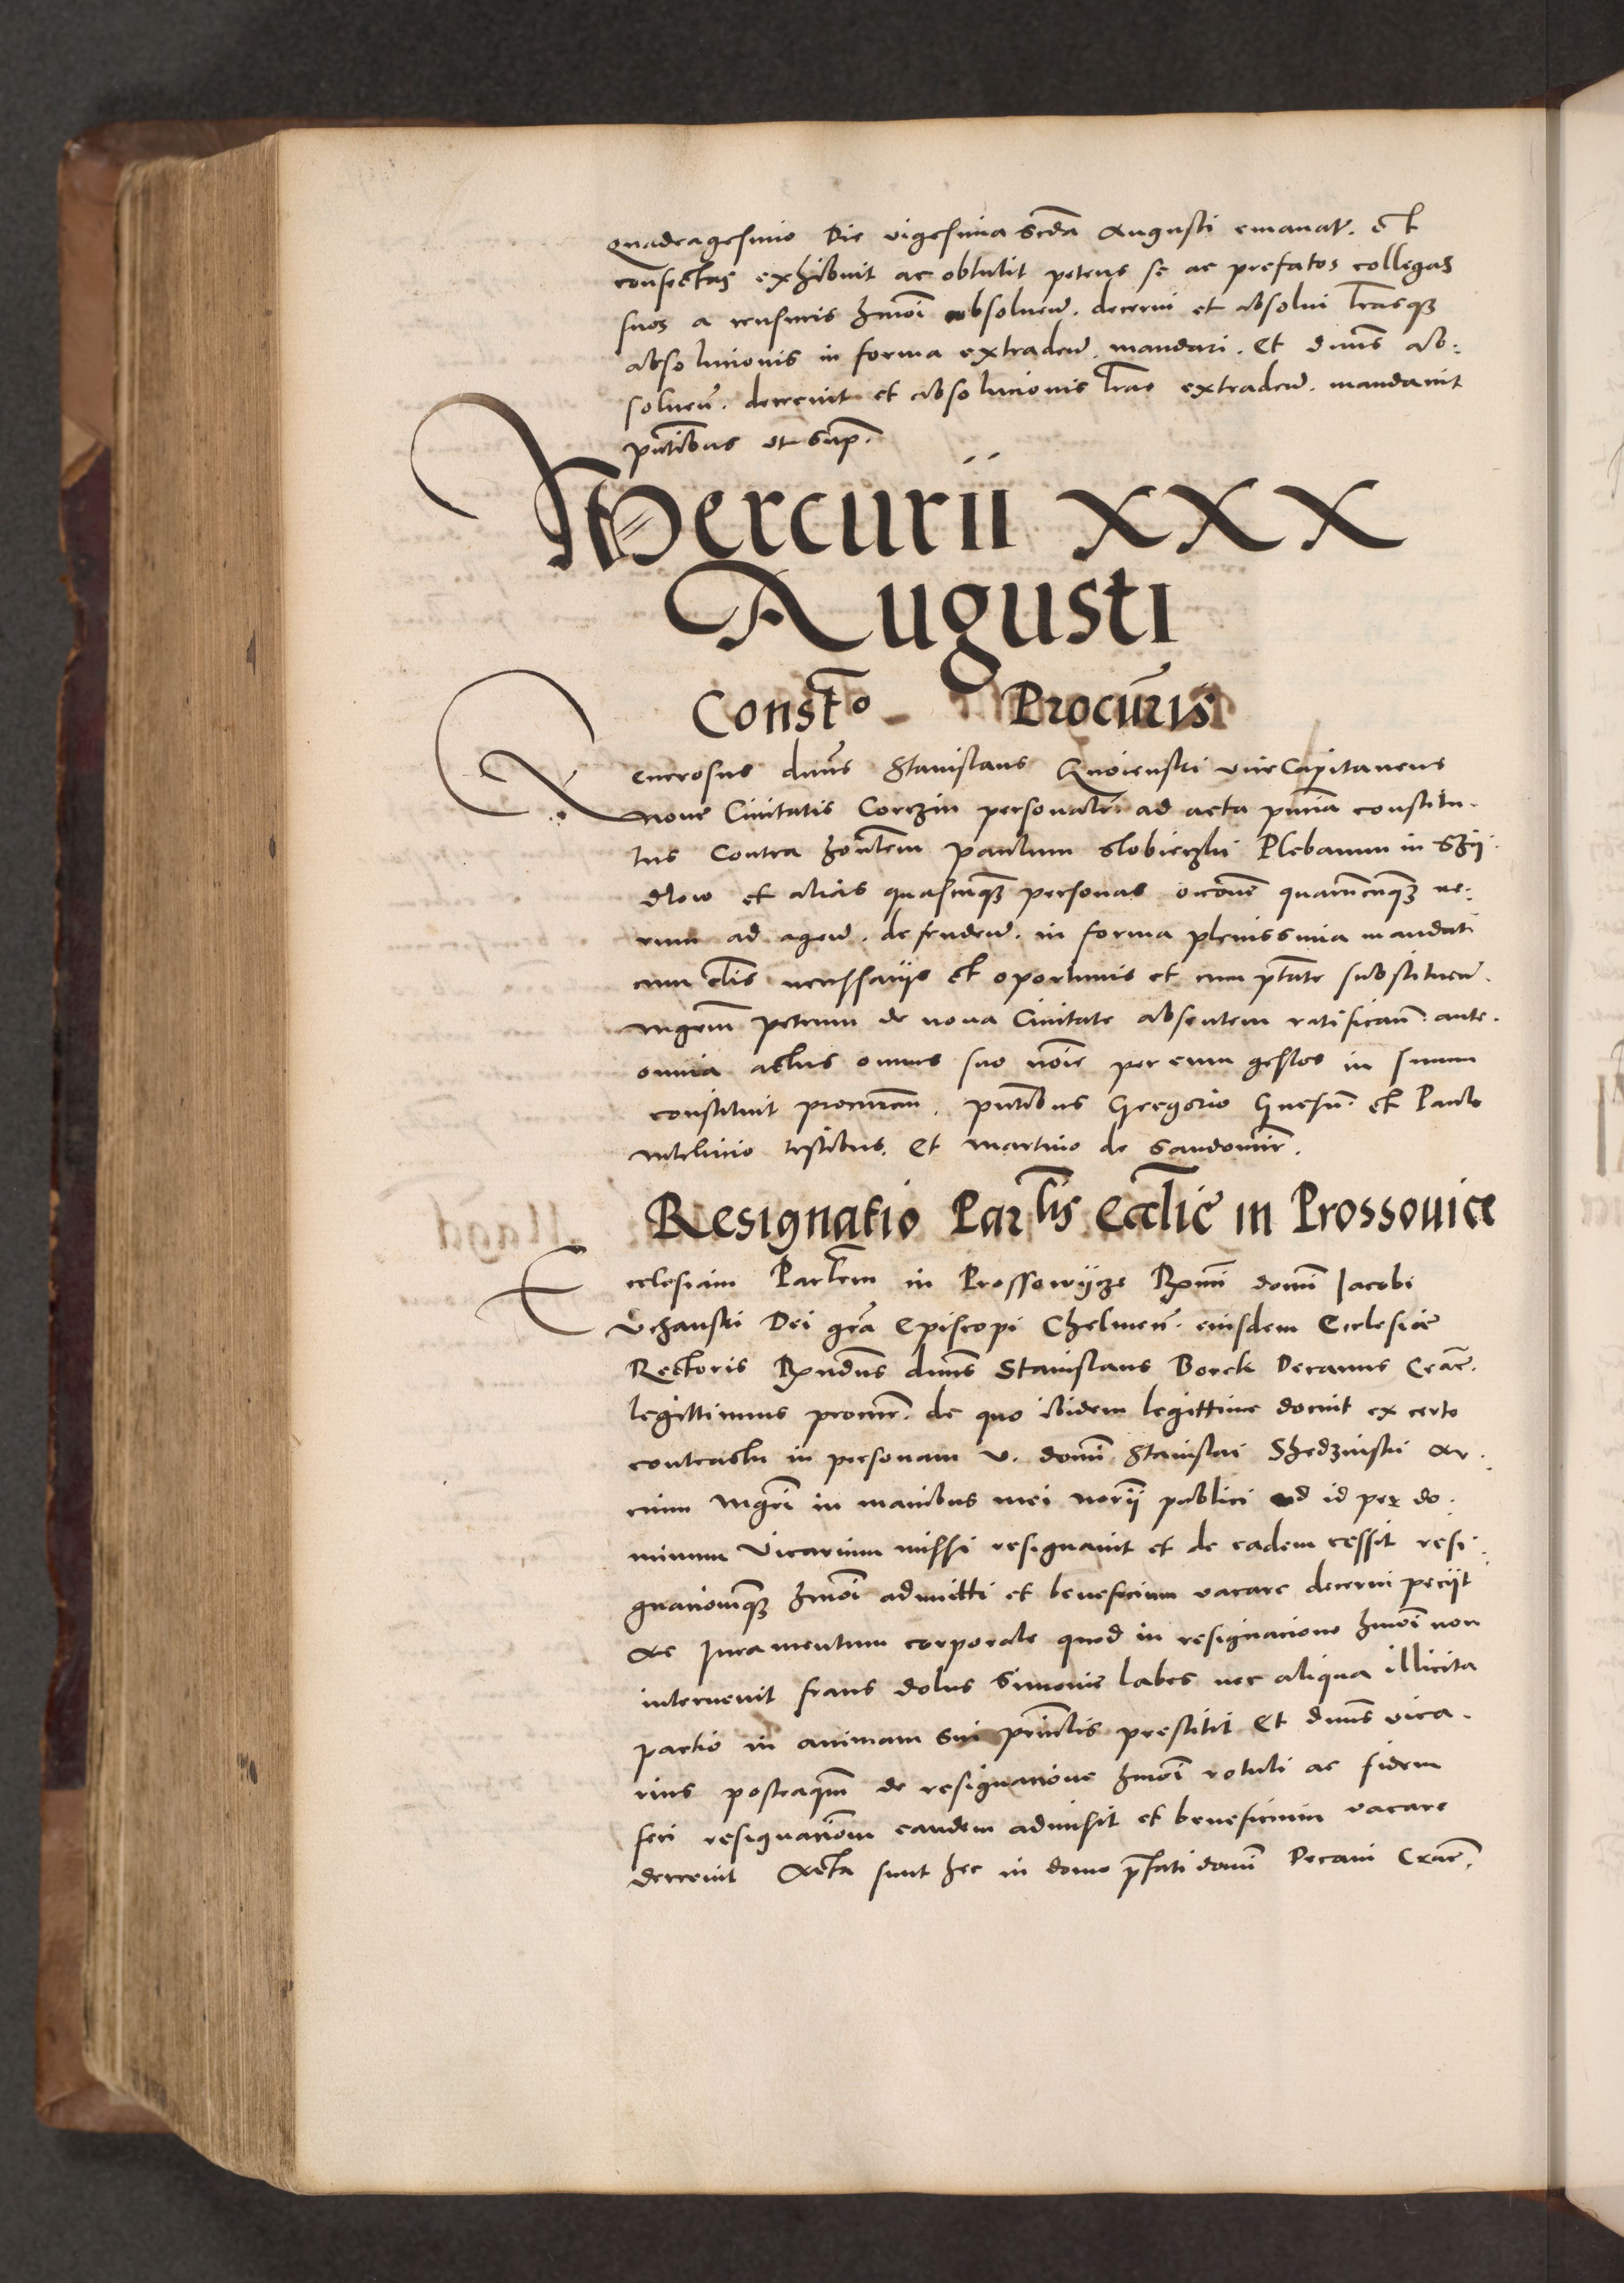 quadragesimo Die vigesima scda Augusti emanat. Et
confectas exhibuit ac obtulit petens se ac prefatos collegas
suos a censuris hmoi absoluen. decerni et absolui lrasq3
absolucionis in forma extraden. mandari. Et dnus ab:
soluen. decreuit et absolucionis lras extraden. mandauit
pntibus ut sup.
Mercurii XXX
Augusti
Constto Procuris
Generosus dnus Stanislaus Gnoienski viceCapitaneus
noue Ciuitatis Corczin personalr ad acta pntia constitu.
tus Contra honlem paulum slobiczki Plebanum in Szij.
dlow et alias quascunq3 personas occone quarumcunq3 re:
rum ad agen. defenden. in forma plenissima mandati
cum clis necessarijs et oportunis et cum ptate substituen.
mgrm petrum de noua Ciuitate absentem ratifican. ante.
omnia actus omnes suo noie per eum gestos in suum
constituit procurem. pntibus Gregorio Gnesn. et Paulo
testibus. Et martino de Sandomir.
Resignatio Parlis Ecclie in Prossouice
Ecclesiam Parlem in Prossowijcze Rmi domi Jacobi
Vchanski Dei gra Episcopi Chelmen. eiusdem Ecclesie
Rectoris Rndus dnus Stanislaus Borek Decanus Crac.
legittimus procur. de quo ibidem legittime docuit ex certo
contractu in personam v. domi Stanislai ar.
cium mgri in manibus mei norij publici ad id per do.
minum Vicarium missi resignauit et de eadem cessit resi.
gnacionemq3 hmoi admitti et beneficium vacare decerni peciit
Ac Juramentum corporale quod in resignacione hmoi non
interuenit fraus dolus Simonie labes nec aliqua illicita
pactio in animam sui prinlis prestitit Et dnus vica.
rius posteaqm de resignacione hmoi rotuli ac fidem
feci resignacionem eandem admisit et beneficium vacare
decreuit Acta sunt hec in domo pfati domi Decani Crac.